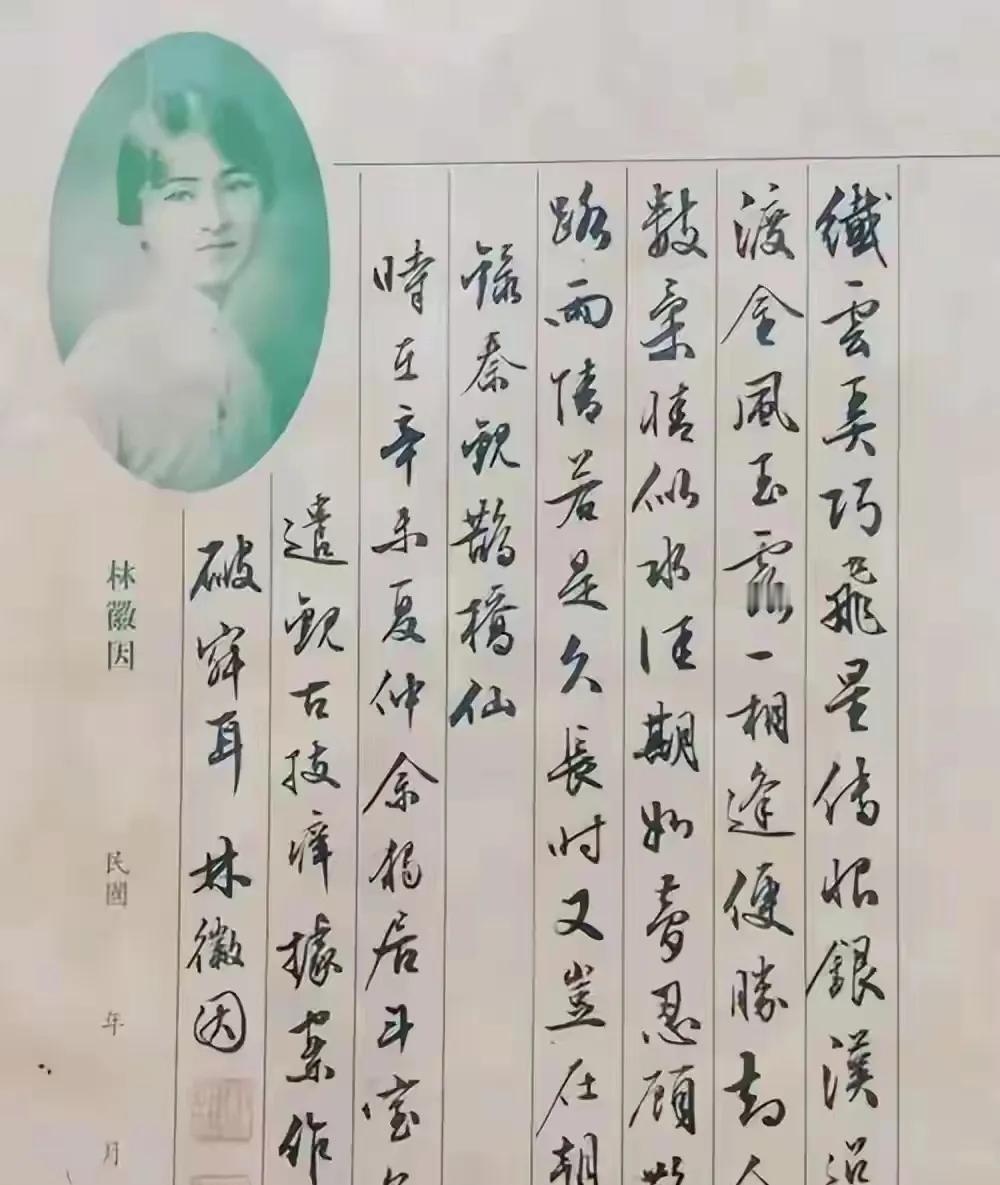 纖雲弄巧飛星傳恨銀漢迢
渡金風玉露一相逢便勝却人
數柔情似水佳期如夢忍顧鵲
路兩情若是久長時又豈在朝
錄秦觀鵲橋仙
時在辛未夏仲余獨居斗室
遣觀古技痒據案作
破寂耳 林徽因
林徽因
民國 年 月